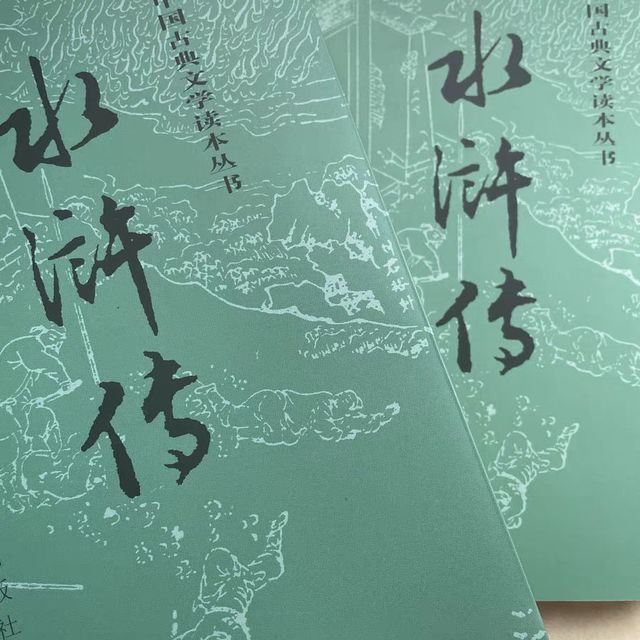 国古典文学读本丛书
水浒传
社
国古典文学读本丛书
水浒传